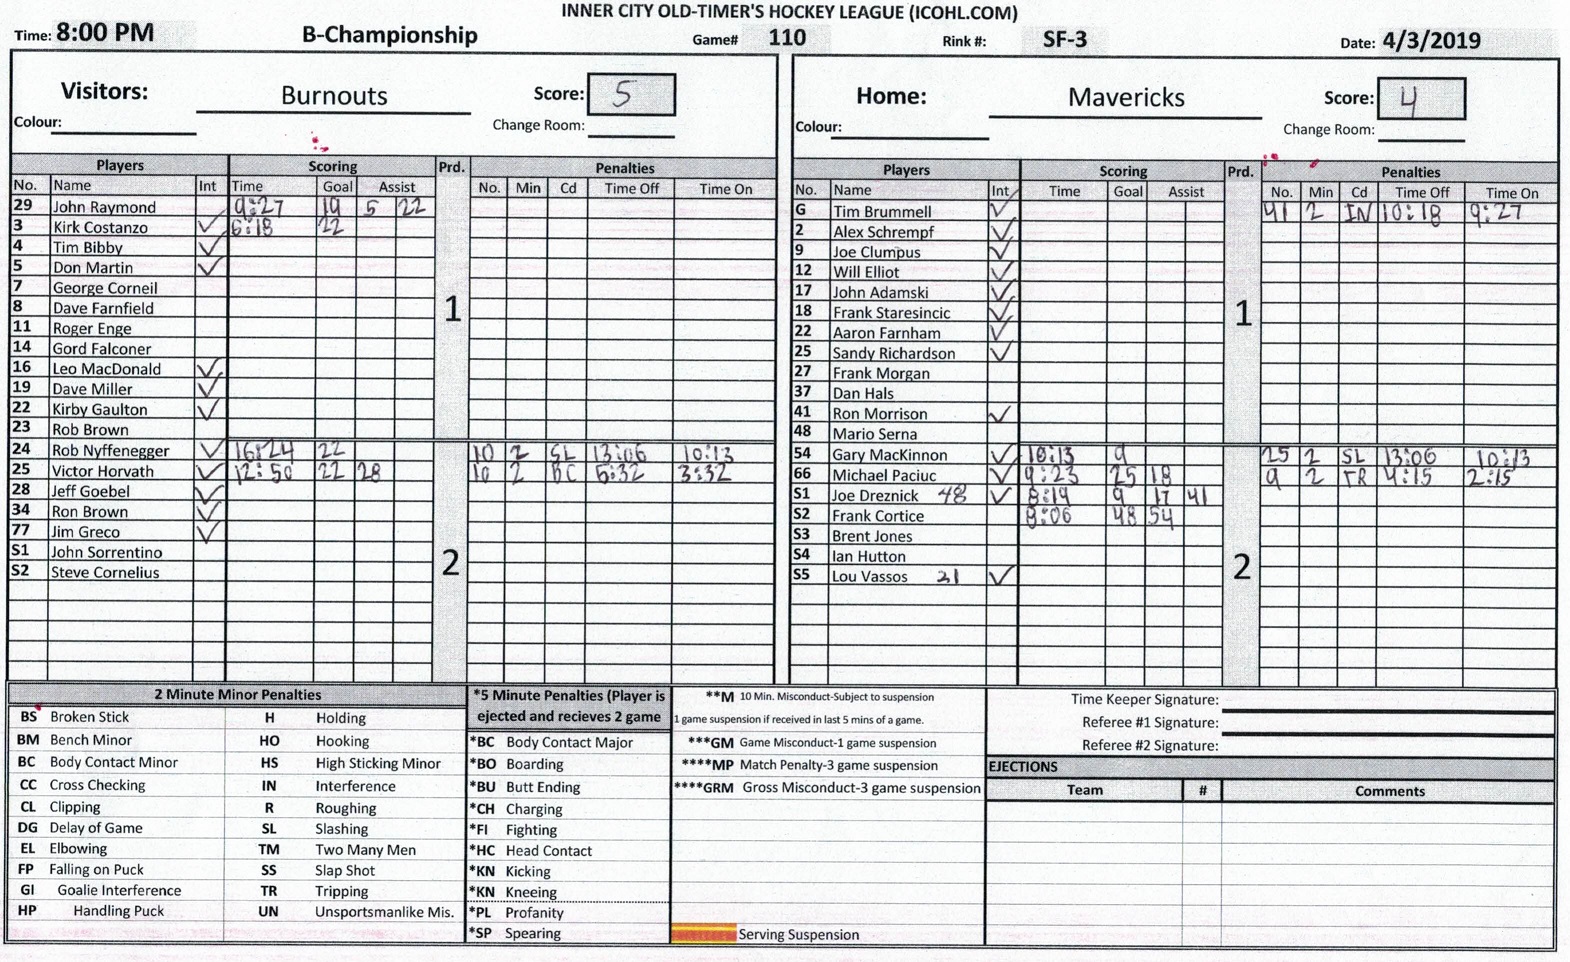 INNER CITY OLD-TIMER'S HOCKEY LEAGUE (ICOHL.COM)
Time: 8:00 PM B-Championship Game# 110 Rink #: SF-3 Date: 4/3/2019
Visitors: Burnouts Score: 5
Colour: Change Room:
Players Scoring Prd. Penalties
No. Name Int Time Goal Assist No. Min Cd Time Off Time On
29 John Raymond 9:27 19 5 22
3 Kirk Costanzo ✓ 6:18 22
4 Tim Bibby ✓
5 Don Martin ✓
7 George Corneil
8 Dave Farnfield
1
11 Roger Enge
14 Gord Falconer
16 Leo MacDonald ✓
19 Dave Miller ✓
22 Kirby Gaulton ✓
23 Rob Brown
24 Rob Nyffenegger ✓ 16:24 22 10 2 SL 13:06 10:13
25 Victor Horvath ✓ 12:50 22 28 10 2 BC 5:32 3:32
28 Jeff Goebel ✓
34 Ron Brown ✓
77 Jim Greco ✓
S1 John Sorrentino
2
S2 Steve Cornelius
Home: Mavericks Score: 4
Colour: Change Room:
Players Scoring Prd. Penalties
No. Name Int Time Goal Assist No. Min Cd Time Off Time On
G Tim Brummell ✓ 41 2 IN 10:18 9:27
2 Alex Schrempf ✓
9 Joe Clumpus ✓
12 Will Elliot ✓
17 John Adamski ✓
18 Frank Staresincic ✓
1
22 Aaron Farnham ✓
25 Sandy Richardson ✓
27 Frank Morgan
37 Dan Hals
41 Ron Morrison ✓
48 Mario Serna
54 Gary MacKinnon ✓ 10:13 9 25 2 SL 13:06 10:13
66 Michael Paciuc ✓ 9:23 25 18 9 2 TR 4:15 2:15
S1 Joe Dreznick 48 ✓ 8:19 9 17 41
S2 Frank Cortice 8:06 48 54
S3 Brent Jones
S4 Ian Hutton
2
S5 Lou Vassos 21 ✓
2 Minute Minor Penalties
BS Broken Stick H Holding
BM Bench Minor HO Hooking
BC Body Contact Minor HS High Sticking Minor
CC Cross Checking IN Interference
CL Clipping R Roughing
DG Delay of Game SL Slashing
EL Elbowing TM Two Many Men
FP Falling on Puck SS Slap Shot
GI Goalie Interference TR Tripping
HP Handling Puck UN Unsportsmanlike Mis.
*5 Minute Penalties (Player is
ejected and recieves 2 game
*BC Body Contact Major
*BO Boarding
*BU Butt Ending
*CH Charging
*FI Fighting
*HC Head Contact
*KN Kicking
*KN Kneeing
*PL Profanity
*SP Spearing
**M 10 Min. Misconduct-Subject to suspension
1 game suspension if received in last 5 mins of a game.
***GM Game Misconduct-1 game suspension
****MP Match Penalty-3 game suspension
****GRM Gross Misconduct-3 game suspension
Serving Suspension
Time Keeper Signature:
Referee #1 Signature:
Referee #2 Signature:
EJECTIONS
Team # Comments